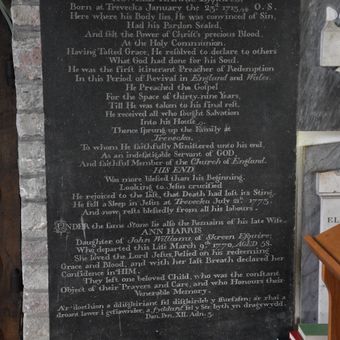 Born at Trevecka January the 23d 1713/14 O. S.
Here where his Body lies, He was convinced of Sin,
Had his Pardon Sealed,
And felt the Power of Christ's precious Blood,
At the Holy Communion.
Having Tasted Grace, He resolved to declare to others
What God had done for his Soul.
He was the first itinerant Preacher of Redemption
In this Period of Revival in England and Wales.
He Preached the Gospel
For the Space of thirty-nine Years,
Till He was taken to his final rest.
He received all who sought Salvation
Into his House,
Thence sprung up the Family at
Trevecka,
To whom He faithfully Ministered unto his end,
As an indefatigable Servant of GOD,
And faithful Member of the Church of England.
HIS END
Was more blessed than his Beginning.
Looking to Jesus crucified
He rejoiced to the last, that Death had lost its Sting.
He fell a Sleep in Jesus at Trevecka July 21st 1773.
And now rests blessedly from all his labours.
UNDER the same Stone lie also the Remains of his late Wife
ANN HARRIS
Daughter of John Williams of Skreen Esquire;
Who departed this Life March 9th 1770, AGED 58.
She loved the Lord Jesus, Relied on his redeeming
Grace and Blood, and with her last Breath declared her
Confidence in HIM.
They left one beloved Child, who was the constant
Object of their Prayers and Care, and who Honours their
Venerable Memory.
A'r doethion a ddisgleiriant fel disgleirdeb y ffurfafen; a'r rhai a
droant lawer i gyfiawnder, a fyddant fel y Ser byth yn dragywydd.
Dan. Pen. XII. Adn. 3.